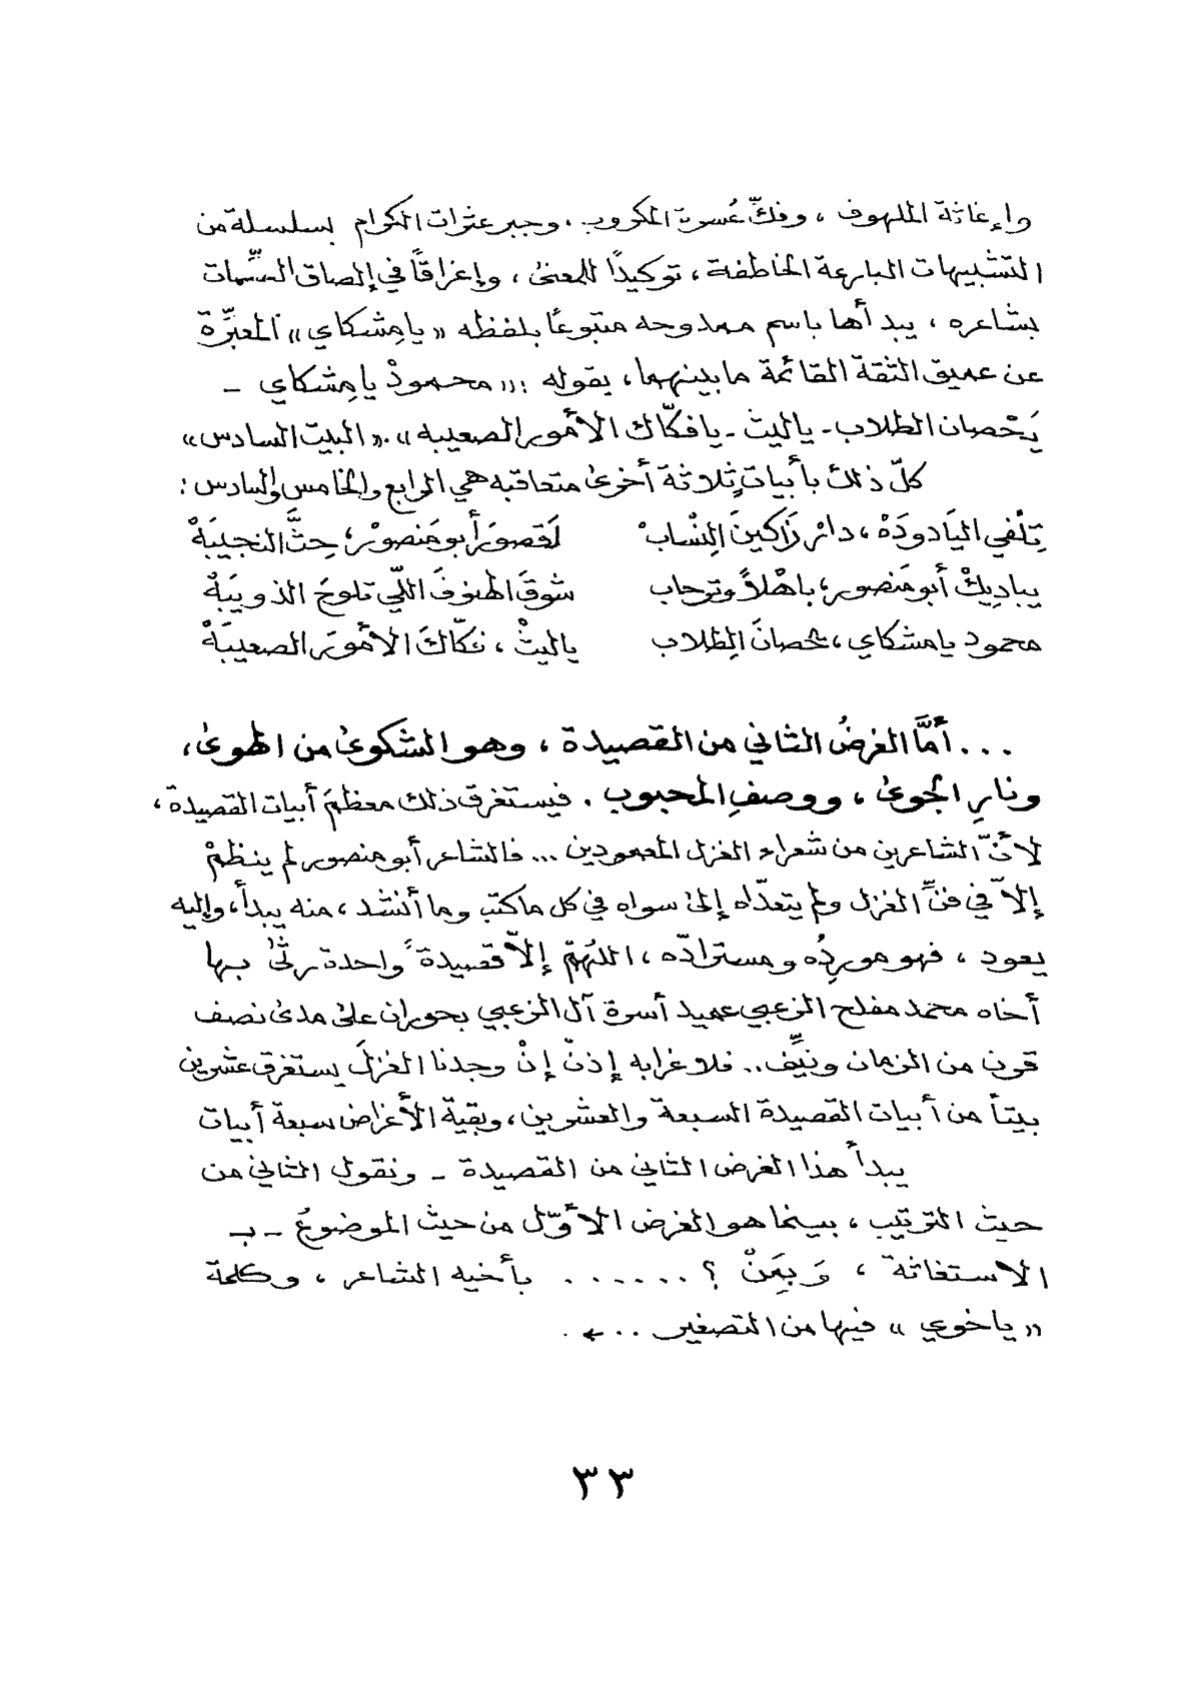 وإغاثة الملهوف ، وفكّ عُسرة المكروب ، وجبر عثرات الكرام بسلسلة من
التشبيهات البارعة الخاطفة ، توكيدًا للمعنى ، وإغراقًا في إلصاق السِّمات
بشاعره ، يبدأها باسم ممدوحه متبوعًا بلفظه « يا مِشكاي » المعبِّرة
عن عميق الثقة القائمة ما بينهما ، بقوله : « محمودْ يا مِشكاي -
يَحْصان الطلاب - يا ليث - يا فكّاك الأمور الصعيبه » . « البيت السادس »
كلّ ذلك بأبياتٍ ثلاثة أخرى متعاقبه هي الرابع والخامس والسادس :
تِلْفي اليَادودَهْ ، دارْ زَاكينَ النِسْابْ لَقصورَ أبو مَنصورْ ، حِثَّ النجيبَهْ
يباديكْ أبو مَنصور ، باهْلاً وترحاب شوقَ الهنوفَ اللّي تلوحَ الذويبَهْ
محمود يا مشكاي ، يحصانَ الِطلاب يا ليثْ ، فكّاكَ الأمورَ الصعيبَهْ
... أمَّا الغرضُ الثاني من القصيدة ، وهو الشكوى من الهوى ،
ونارِ الجوى ، ووصفِ المحبوب . فيستغرق ذلك معظمَ أبيات القصيدة ،
لأنّ الشاعرين من شعراء الغزل المعمودين ... فالشاعر أبو منصور لم ينظمْ
إلاّ في فنِّ الغزل ولم يتعدّاه إلى سواه في كل ما كتب وما أنشد ، منه يبدأ ، وإليه
يعود ، فهو موردُه ومسترادّه ، اللهُمّ إلاّ قصيدةً واحدة رثَّى بها
أخاه محمد مفلح الزعبي عميد أسرة آل الزعبي بحوران على مدى نصف
قرن من الزمان ونيِّف .. فلا غرابه إذنْ إنْ وجدنا الغزلَ يستغرق عشرين
بيتاً من أبيات القصيدة السبعة والعشرين ، وبقية الأغراض سبعة أبيات
يبدأ هذا الغرض الثاني من القصيدة - ونقول الثاني من
حيث الترتيب ، بينما هو الغرض الأوّل من حيث الموضوع - بـ
الاستغاثة ، وَبِمَنْ ؟ ...... بأخيه الشاعر ، وكلمة
« يا خوي » فيها من التصغير .. ← .
٣٣